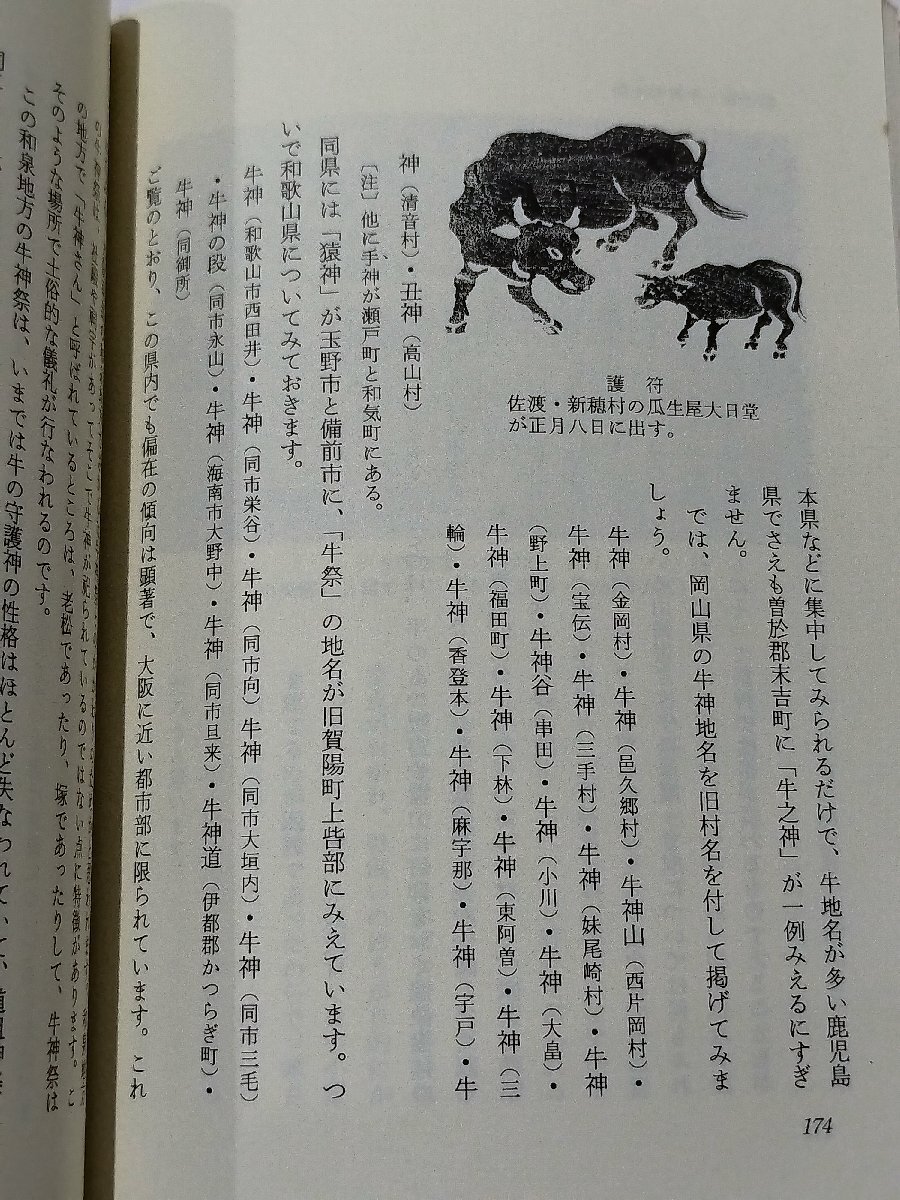 護符
佐渡・新穂村の瓜生屋大日堂
が正月八日に出す。
本県などに集中してみられるだけで、牛地名が多い鹿児島
県でさえも曽於郡末吉町に「牛之神」が一例みえるにすぎ
ません。
では、岡山県の牛神地名を旧村名を付して掲げてみま
しょう。
牛神（金岡村）・牛神（邑久郷村）・牛神山（西片岡村）・
牛神（宝伝）・牛神（三手村）・牛神（妹尾崎村）・牛神
（野上町）・牛神谷（串田）・牛神（小川）・牛神（大畠）・
牛神（福田町）・牛神（下林）・牛神（東阿曽）・牛神（三
輪）・牛神（香登本）・牛神（麻宇那）・牛神（宇戸）・牛
神（清音村）・丑神（高山村）
［注］他に手神が瀬戸町と和気町にある。
同県には「猿神」が玉野市と備前市に、「牛祭」の地名が旧賀陽町上呰部にみえています。つ
いで和歌山県についてみておきます。
牛神（和歌山市西田井）・牛神（同市栄谷）・牛神（同市向）牛神（同市大垣内）・牛神（同市三毛）
・牛神の段（同市永山）・牛神（海南市大野中）・牛神（同市旦来）・牛神道（伊都郡かつらぎ町）・
牛神（同御所）
ご覧のとおり、この県内でも偏在の傾向は顕著で、大阪に近い都市部に限られています。これ
174
があってそこで牛神が祀られているのではない点に特徴があります。こ
の地方で「牛神さん」と呼ばれているところは、老松であったり、塚であったりして、牛神祭は
そのような場所で土俗的な儀礼が行なわれるのです。
この和泉地方の牛神祭は、いまでは牛の守護神の性格はほとんど失なわれていて、